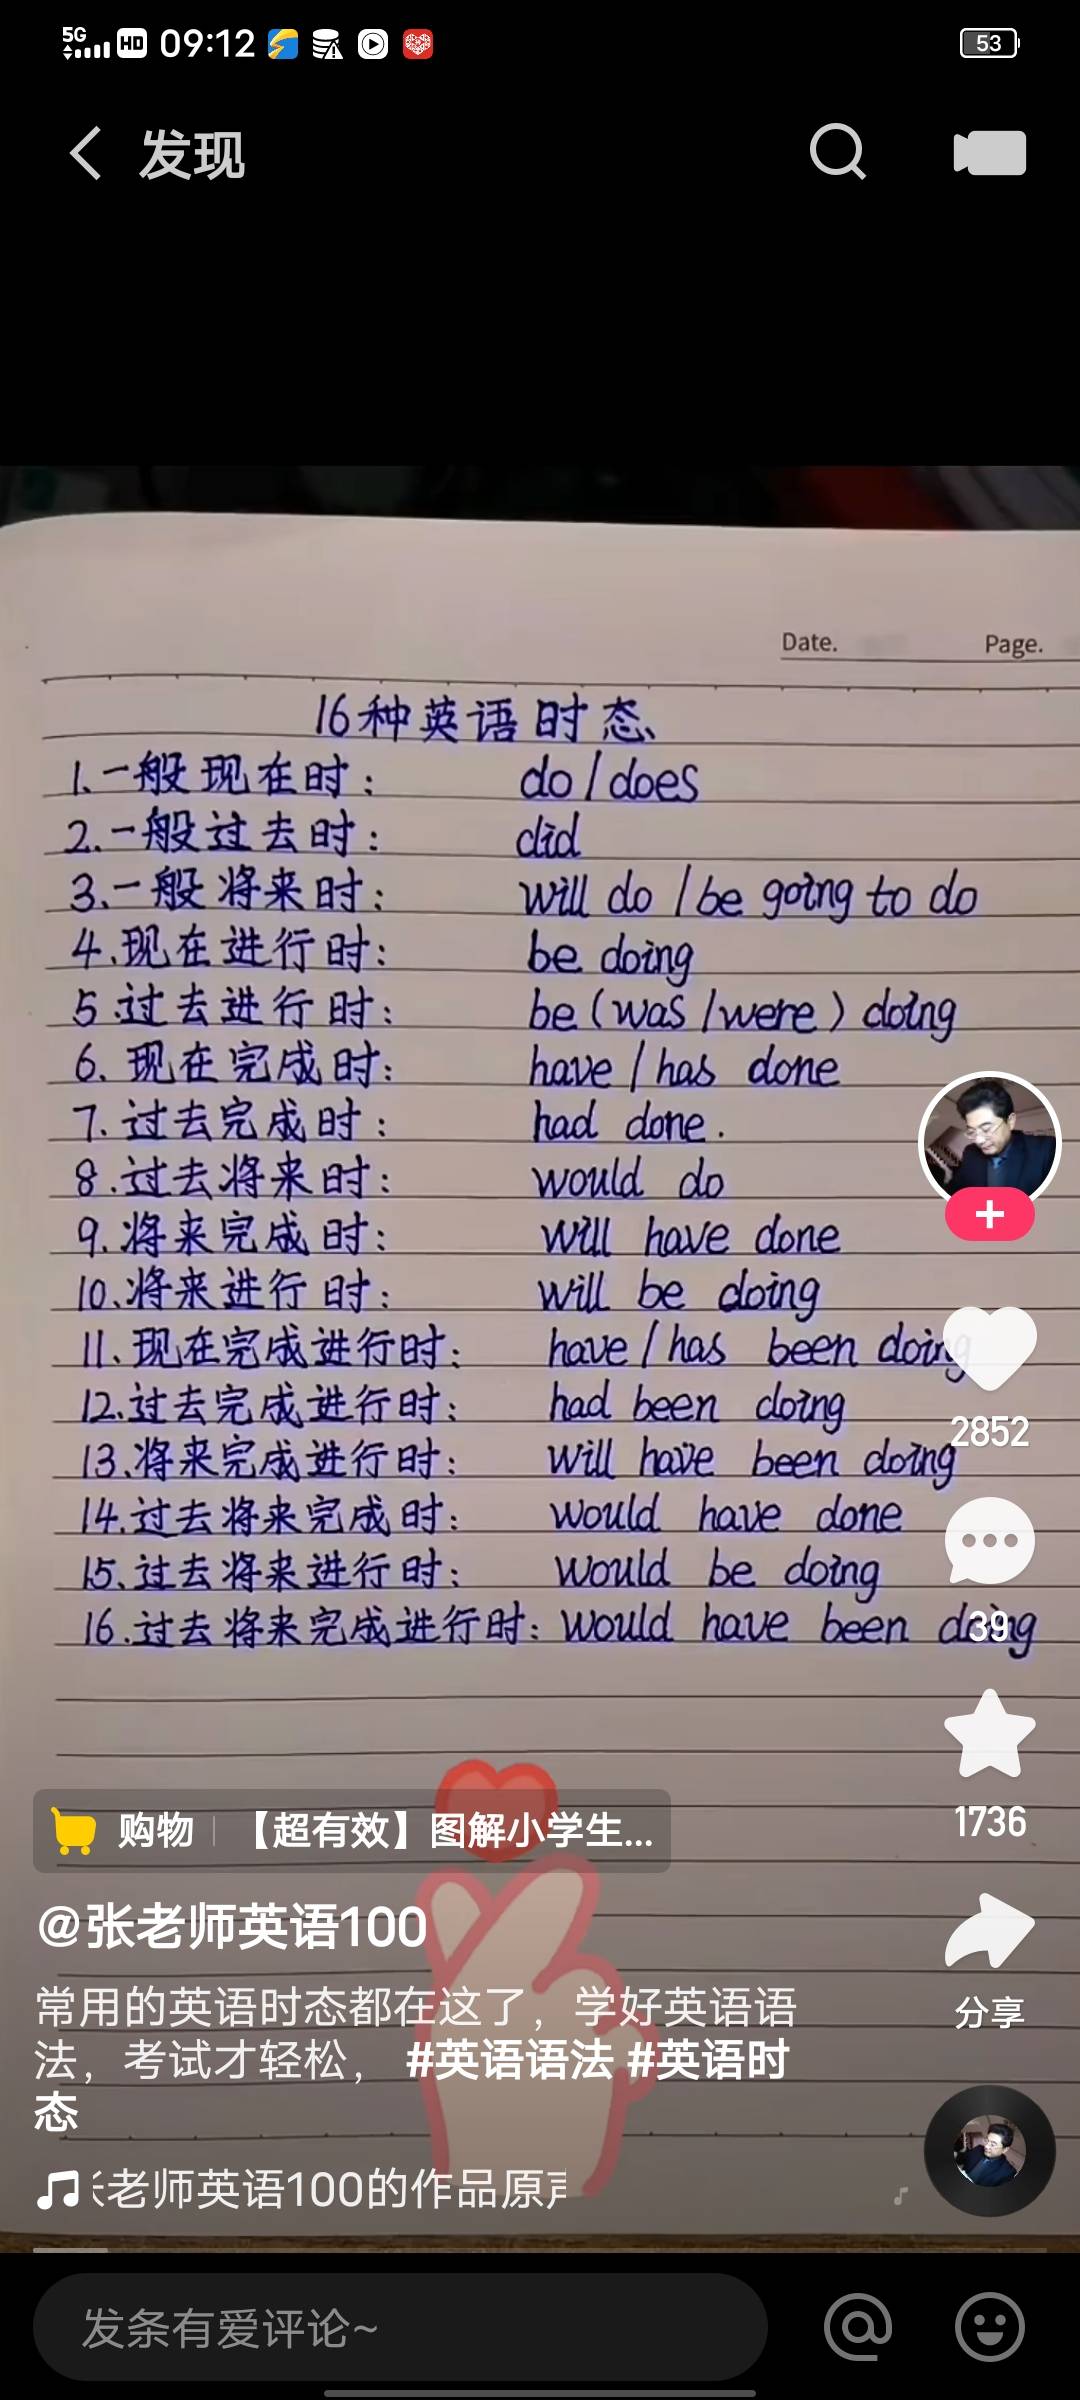 5G HD 09:12 53
发现
Date. Page.
16种英语时态
1.一般现在时: do/does
2.一般过去时: did
3.一般将来时: will do /be going to do
4.现在进行时: be doing
5.过去进行时: be(was/were) doing
6.现在完成时: have/has done
7.过去完成时: had done.
8.过去将来时: would do
9.将来完成时: will have done
10.将来进行时: will be doing
11.现在完成进行时: have/has been doing
12.过去完成进行时: had been doing
13.将来完成进行时: will have been doing
14.过去将来完成时: would have done
15.过去将来进行时: would be doing
16.过去将来完成进行时: would have been doing
2852
39
1736
分享
购物 【超有效】图解小学生...
@张老师英语100
常用的英语时态都在这了，学好英语语
法，考试才轻松， #英语语法 #英语时
态
老师英语100的作品原
发条有爱评论~